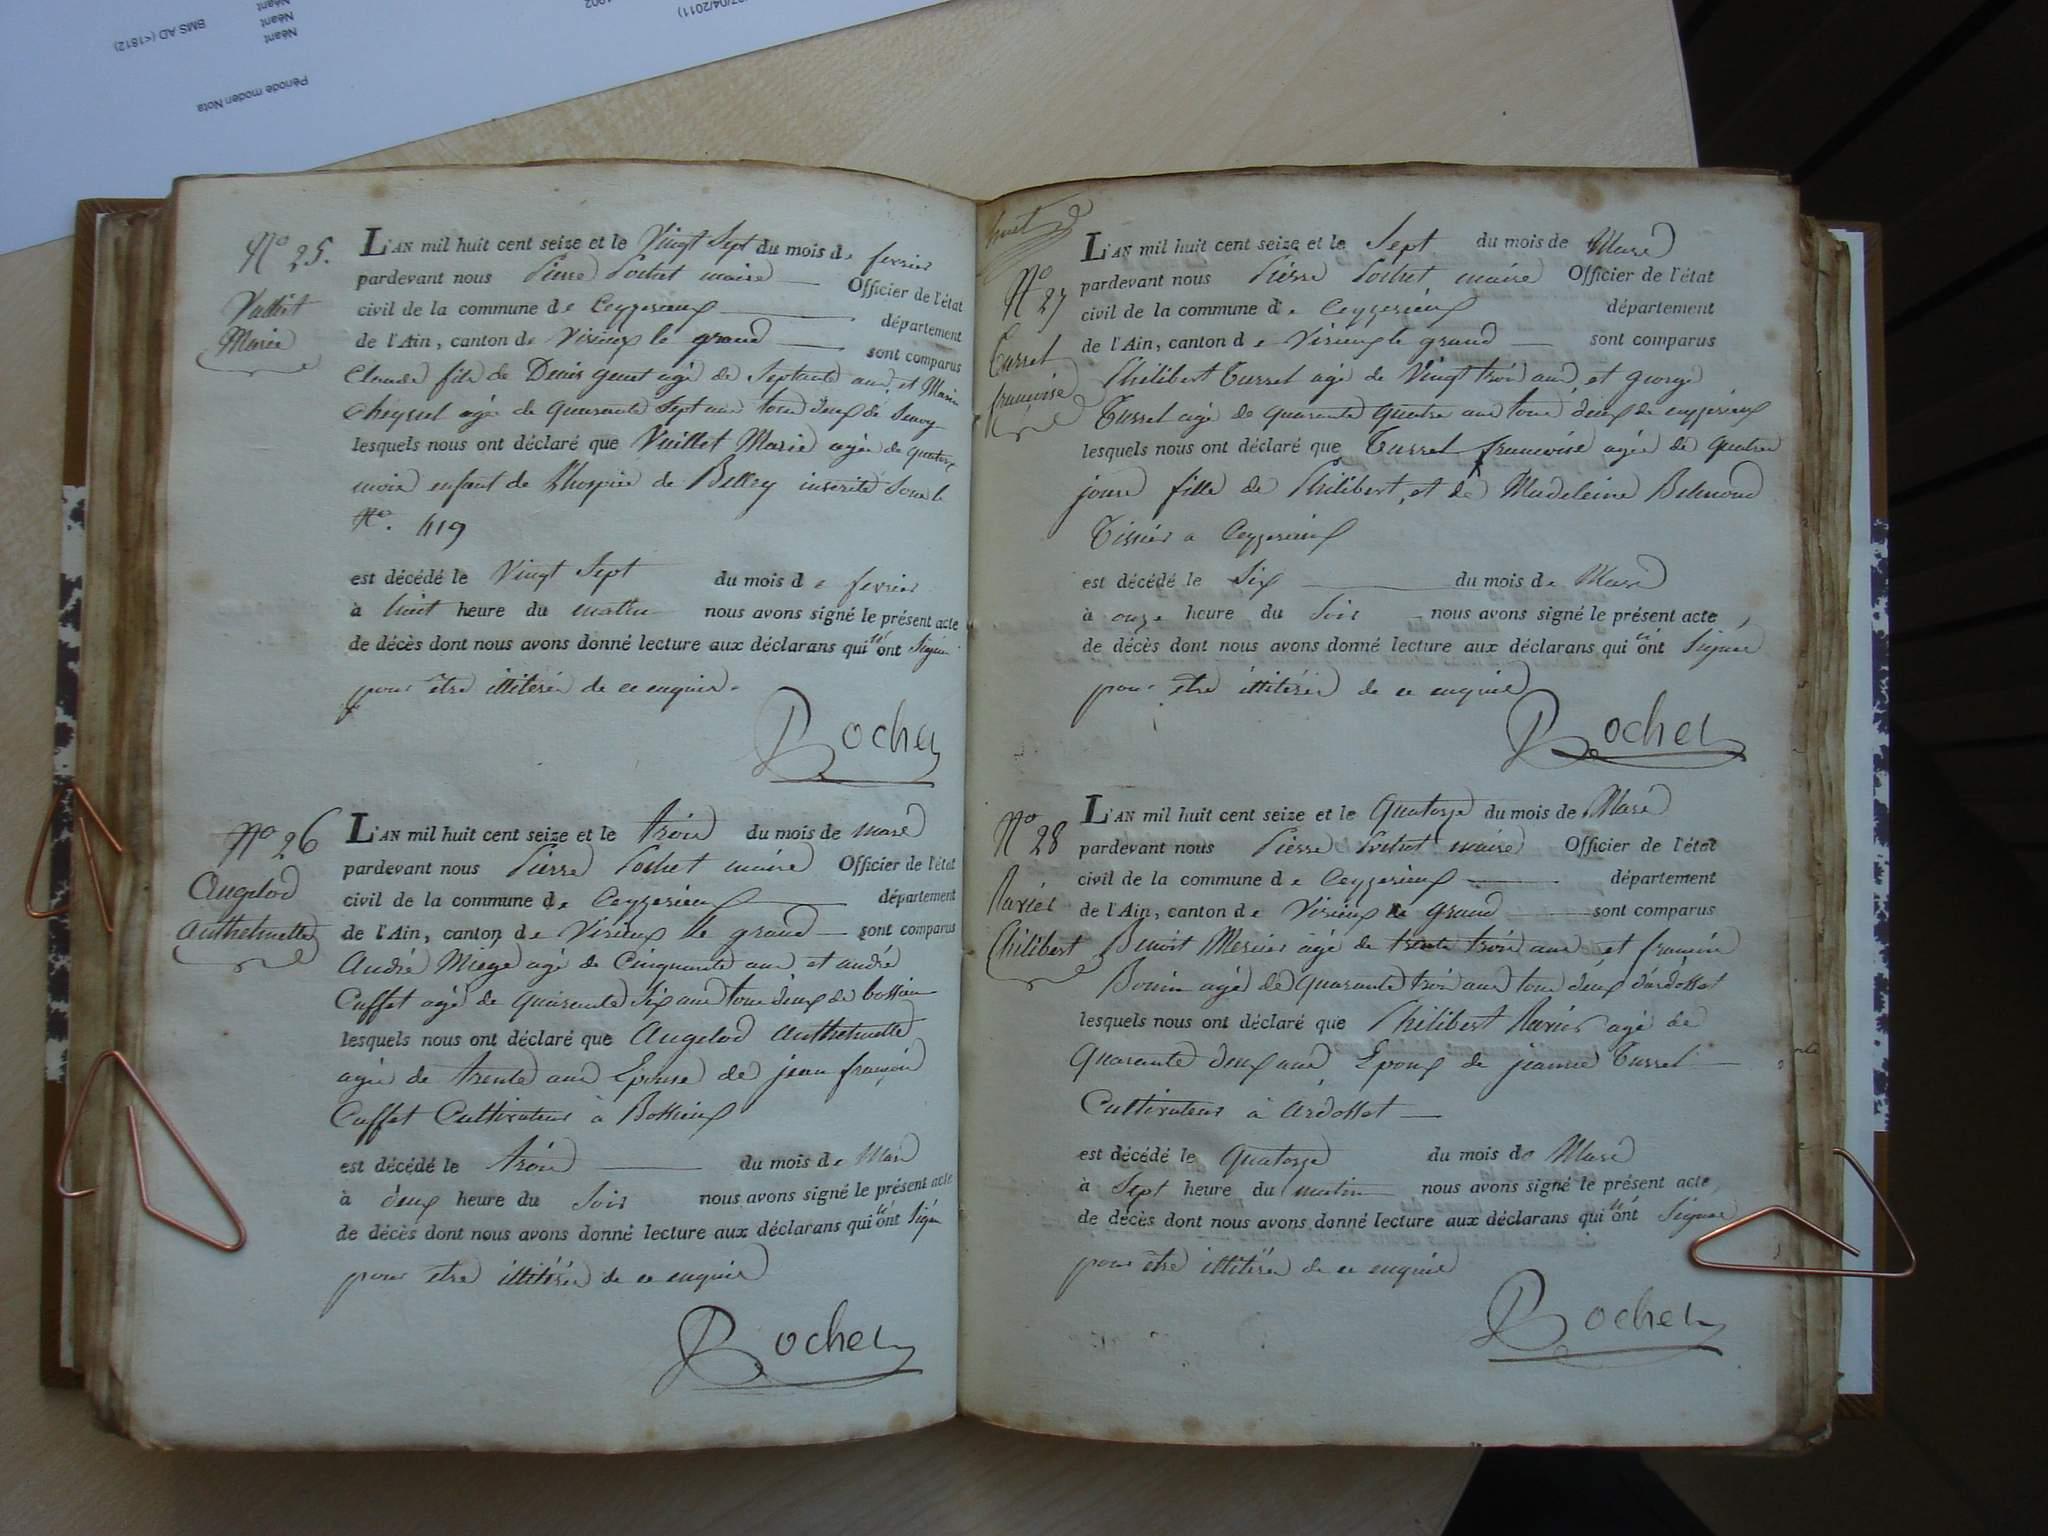 27/04/2011)
1902
Néant
Néant
BMS AD (<1812)
Période moden Nota
N° 25.
Vuillet
Marie
L'AN mil huit cent seize et le Vingt Sept du mois de fevrier
pardevant nous Pierre Pochet maire Officier de l'état
civil de la commune de Ceyzerieux département
de l'Ain, canton de Virieux le grand sont comparus
Claude fils de Denis genet agé de Septante ans, et Marin
Cheysset agé de quarante Sept ans tous deux de
lesquels nous ont déclaré que Vuillet Marie agée de quatre
mois enfant de L'hospice de Belley inscrite Sous le
N°. 419
est décédé le Vingt Sept du mois de fevrier
à huit heure du matin nous avons signé le présent acte
de décès dont nous avons donné lecture aux déclarans qui n'ont Signé
pour être illiterés de ce enquis.
Pochet
N° 26
Angelod
Anthelmette
L'AN mil huit cent seize et le trois du mois de mars
pardevant nous Pierre Pochet maire Officier de l'état
civil de la commune de Ceyzerieux département
de l'Ain, canton de Virieux le grand sont comparus
André Miege agé de Cinquante ans et andré
Cuffet agé de quarante Six ans tous deux de bossieu
lesquels nous ont déclaré que Angelod Anthelmette
agée de trente ans Epouse de jean françois
Cuffet Cultivateur à Bossieux
est décédé le trois du mois de Mars
à deux heure du Soir nous avons signé le présent acte
de décès dont nous avons donné lecture aux déclarans qui n'ont Signé
pour être illitérés de ce enquis
Pochet
huit
N° 27
Turrel
françoise
L'AN mil huit cent seize et le Sept du mois de Mars
pardevant nous Pierre Pochet maire Officier de l'état
civil de la commune de Ceyzerieux département
de l'Ain, canton de Virieux le grand sont comparus
Philibert Turrel agé de Vingt trois ans, et george
Turrel agé de quarente quatre ans tous deux de ceyzérieux
lesquels nous ont déclaré que Turrel françoise agée de quatre
jours fille de Philibert, et de Madeleine Belmond
Tissier a Ceyzerieux
est décédé le Six du mois de Mars
à onze heure du Soir nous avons signé le présent acte
de décès dont nous avons donné lecture aux déclarans qui n'ont Signés
pour être illitérés de ce enquis
Pochet
N° 28
Ravier
Philibert
L'AN mil huit cent seize et le Quatorze du mois de Mars
pardevant nous Pierre Pochet maire Officier de l'état
civil de la commune de Ceyzerieux département
de l'Ain, canton de Virieux le grand sont comparus
Benoit Mercier agé de trente trois ans et françois
Bouin agé de quarante trois ans tous deux d'ardosset
lesquels nous ont déclaré que Philibert Ravier agé de
Quarante deux ans Epoux de jeanne Turrel
Cultivateur à Ardosset
est décédé le Quatorze du mois de Mars
à Sept heure du matin nous avons signé le présent acte
de décès dont nous avons donné lecture aux déclarans qui n'ont Signés
pour être illitérés de ce enquis
Pochet